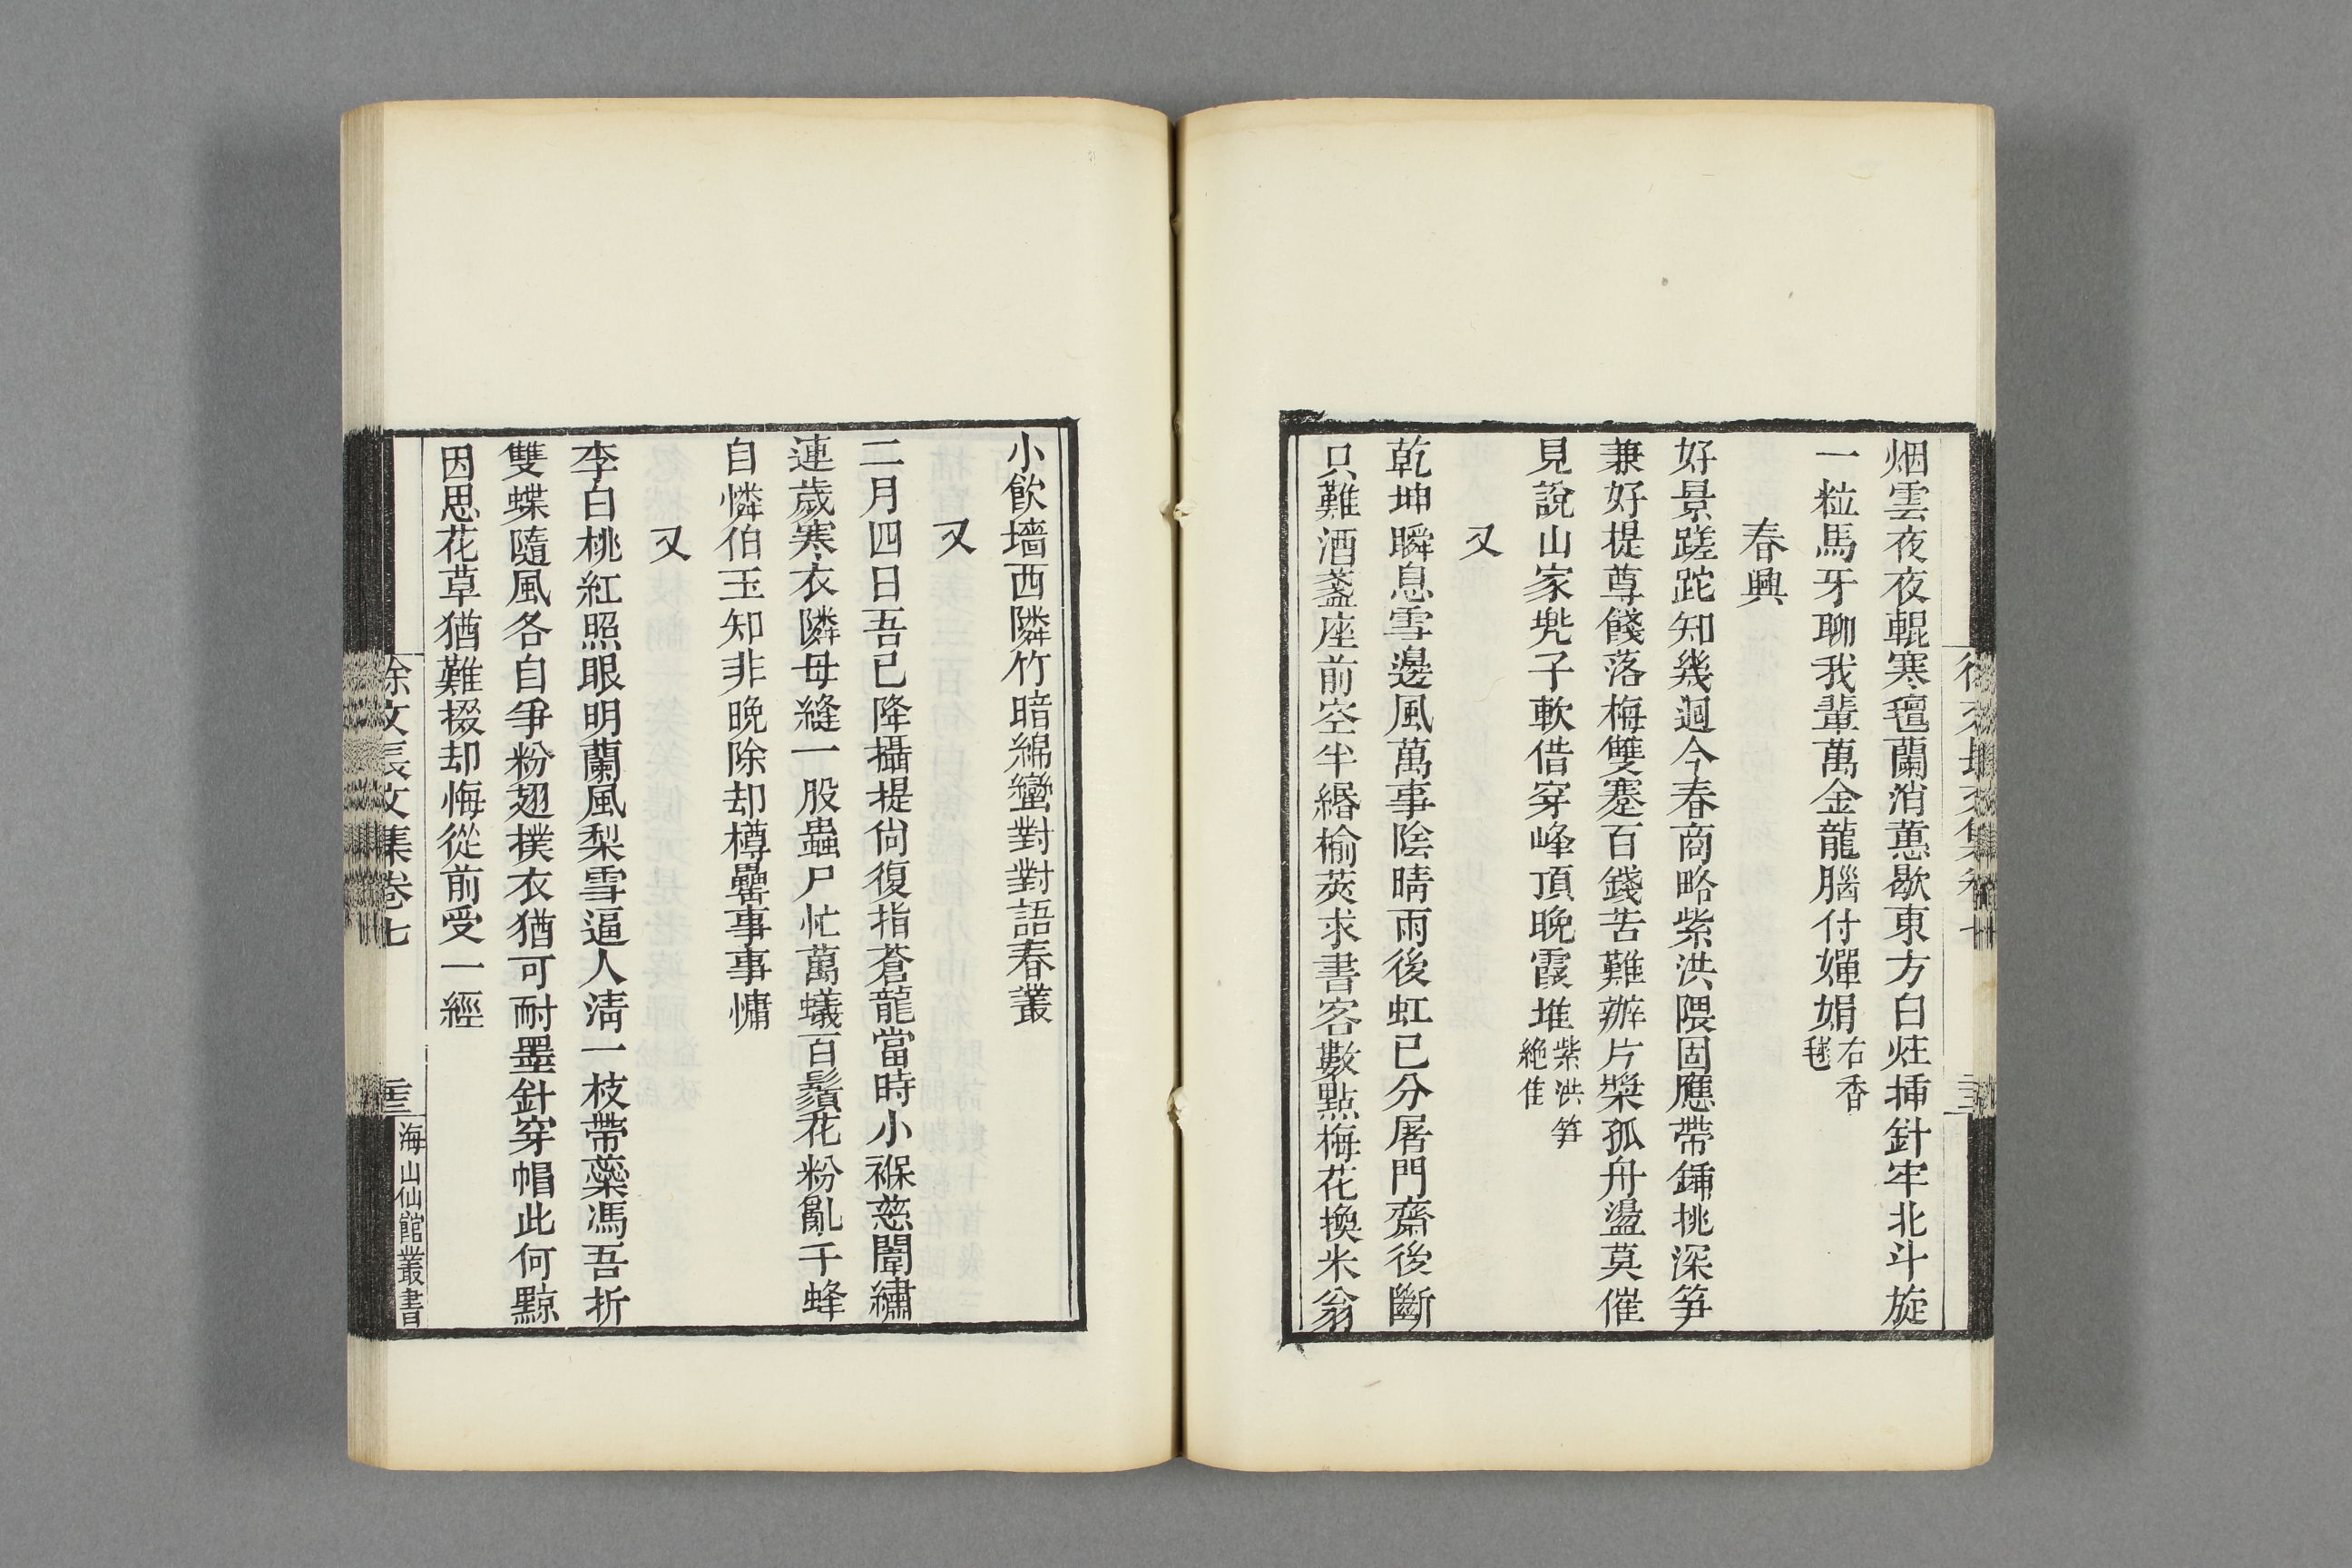 烟雲夜夜輥寒氊蘭消蕙歇東方白炷挿針牢北斗旋
一粒馬牙聊我輩萬金龍腦付嬋娟右香
毬
春興
好景蹉跎知幾迴今春商略紫洪隈固應帶鍤挑深笋
兼好提尊餞落梅雙蹇百錢苦難辦片槳孤舟盪莫催
見說山家兠子軟借穿峰頂晚霞堆紫洪笋
絶佳
又
乾坤瞬息雪邊風萬事陰晴雨後虹已分屠門齋後斷
只難酒盞座前空半緡榆莢求書客數點梅花換米翁
小飲墻西隣竹暗綿蠻對對語春叢
又
二月四日吾已降攝提尙復指蒼龍當時小褓慈闈繡
連歲寒衣隣母縫一股蟲尸忙萬蟻百鬚花粉亂千蜂
自憐伯玉知非晚除却樽罍事事慵
又
李白桃紅照眼明蘭風梨雪逼人淸一枝帶蘂馮吾折
雙蝶隨風各自爭粉翅撲衣猶可耐墨針穿帽此何黥
因思花草猶難掇却悔從前受一經
徐文長文集卷七
海山仙館叢書